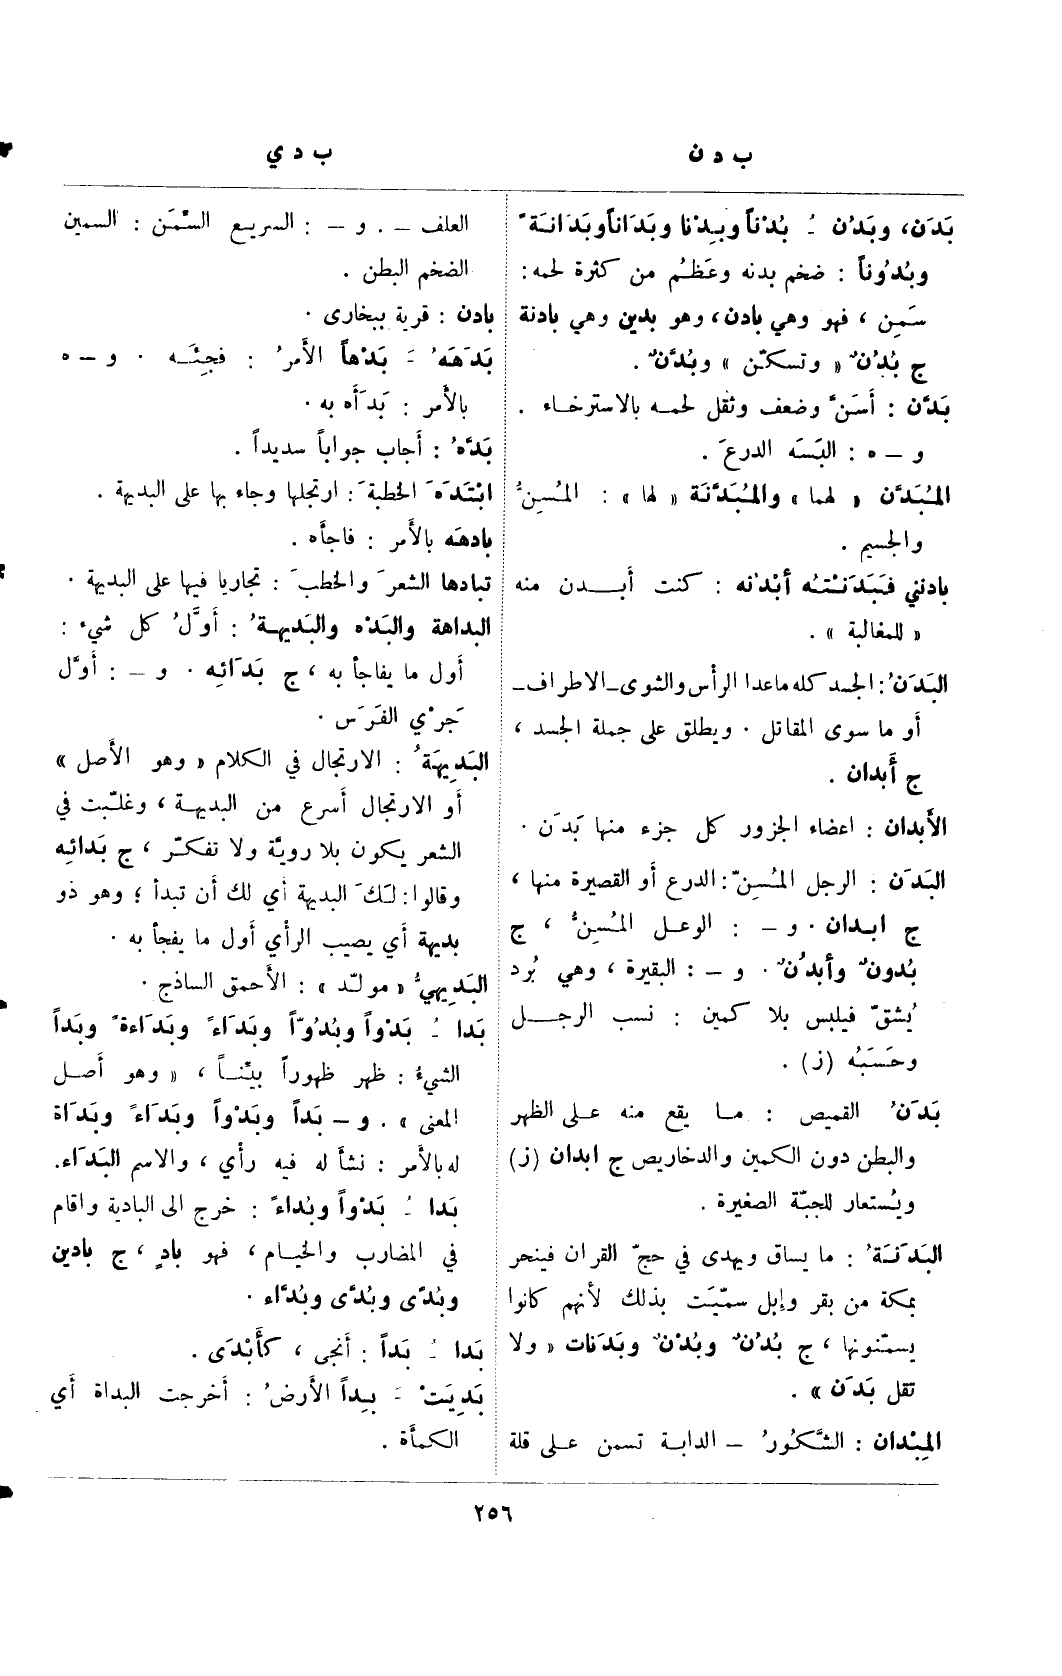 ب د ن
ب د ي
بَدَن، وبَدُن ـُ بُدْناً وبِدْنا وبَدَاناً وبَدَانَةً
وبُدُوناً : ضخم بدنه وعَظُم من كثرة لحمه :
سَمِن ، فهو وهي بادن، وهو بدين وهي بادنة
ج بُدُنٌ « وتسكّن » وبُدَّنٌ .
بَدَّن : أسَنَّ وضعف وثقل لحمه بالاسترخاء .
و ــ ه : البَسَه الدرعَ .
المُبَدَّن « لهما » والمُبَدَّنَة « لها » : المُسِنُّ
والجسيم .
بادنني فبَدَنْتُه أبْدُنه : كنت أبدن منه
« للمغالبة » .
البَدَنُ : الجسد كله ماعدا الرأس والشوى ــ الاطراف ــ
أو ما سوى المقاتل . ويطلق على جملة الجسد ،
ج أَبدان .
الأبدان : اعضاء الجزور كل جزء منها بَدَن .
البَدَن : الرجل المُسِنّ : الدرع أو القصيرة منها ،
ج ابدان . و ــ : الوعل المُسِنُّ ، ج
بُدونٌ وأبدُنٌ . و ــ : البقيرة ، وهي بُرد
يُشقّ فيلبس بلا كمين : نسب الرجل
وحَسَبُه (ز) .
بَدَنُ القميص : ما يقع منه على الظهر
والبطن دون الكمين والدخاريص ج ابدان (ز)
ويُستعار للجبّة الصغيرة .
البَدَنَةُ : ما يساق ويهدى في حجّ القران فينحر
بمكة من بقر وإبل سمّيَت بذلك لأنهم كانوا
يسمّنونها ، ج بُدُنٌ وبُدْنٌ وبَدَنات « ولا
تقل بَدَن » .
المِبْدان : الشَّكُورُ ــ الدابة تسمن على قلة
العلف ــ . و ــ : السريع السِّمَن : السمين
الضخم البطن .
بادن : قرية ببخارى .
بَدَهَهُ ـَ بَدْهاً الأمرُ : فجِئَه . و ــ ه
بالأمر : بَدَأه به .
بَدَّهُ : أجاب جواباً سديداً .
ابْتَدَهَ الخطبةَ : ارتجلها وجاء بها على البديهة .
بادهَه بالأمر : فاجأه .
تبادها الشعرَ والخطبَ : تجاريا فيها على البديهة .
البداهة والبَدْه والبَديهةُ : أوَّلُ كل شيء :
أول ما يفاجأ به ، ج بَدَائِه . و ــ : أوّل
جَرْي الفَرَس .
البَدِيهَةُ : الارتجال في الكلام « وهو الأصل »
أو الارتجال أسرع من البديهة ، وغلّبت في
الشعر يكون بلا رويّة ولا تفكّر ، ج بَدائِه
وقالوا : لكَ البديهة أي لك أن تبدأ ؛ وهو ذو
بديهة أي يصيب الرأي أول ما يفجأ به .
البَدِيهيُّ « مولّد » : الأحمق الساذج .
بَدا ـُ بَدْواً وبُدُوّاً وبَدَاءً وبَدَاءةً وبَداً
الشيءُ : ظهر ظهوراً بيّناً ، « وهو أصل
المعنى » . و ــ بَداً وبَدْواً وبَدَاءً وبَدَاة
له بالأمر : نشأ له فيه رأي ، والاسم البَدَاء.
بَدا ـُ بَدْواً وبُداءً : خرج الى البادية واقام
في المضارب والخيام ، فهو بادٍ ، ج بادين
وبُدًى وبُدَّى وبُدَّاء .
بَدا ـُ بَداً : أنجى ، كأَبْدَى .
بَدِيَتْ ـَ بِداً الأرضُ : أخرجت البداة أي
الكمأة .
٢٥٦